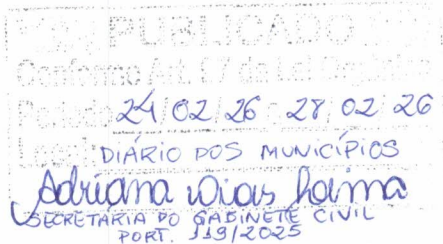 PUBLICADO
Conforme Art. 17 da Lei Orgânica
Período 24/02/26 - 28/02/26
Local: DIÁRIO DOS MUNICÍPIOS
Adriana
SECRETARIA DO GABINETE CIVIL
PORT. 119/2025